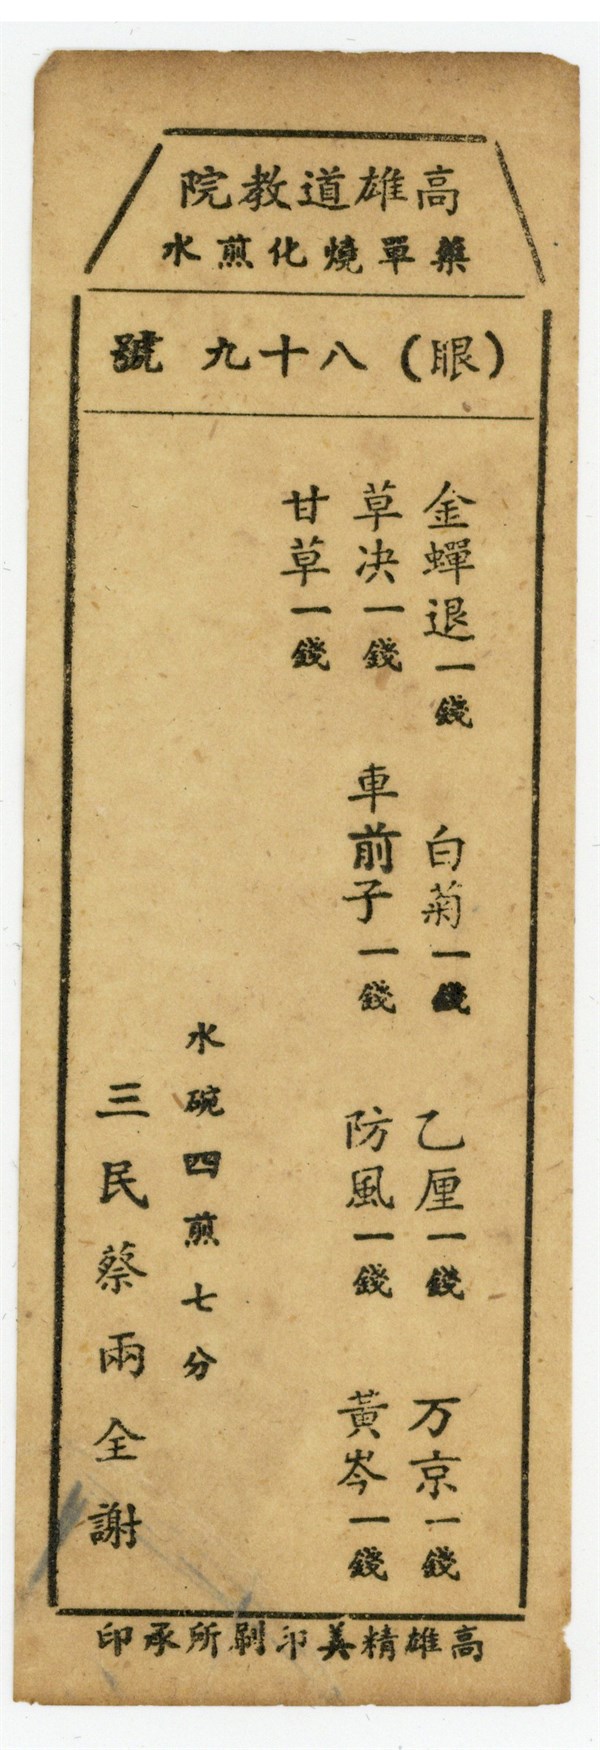 高雄道教院
藥單燒化煎水
(眼)八十九號
金蟬退一錢 白菊一錢 乙厘一錢 万京一錢
草决一錢 車前子一錢 防風一錢 黃岑一錢
甘草一錢
水碗四煎七分
三民蔡兩全謝
高雄精美印刷所承印